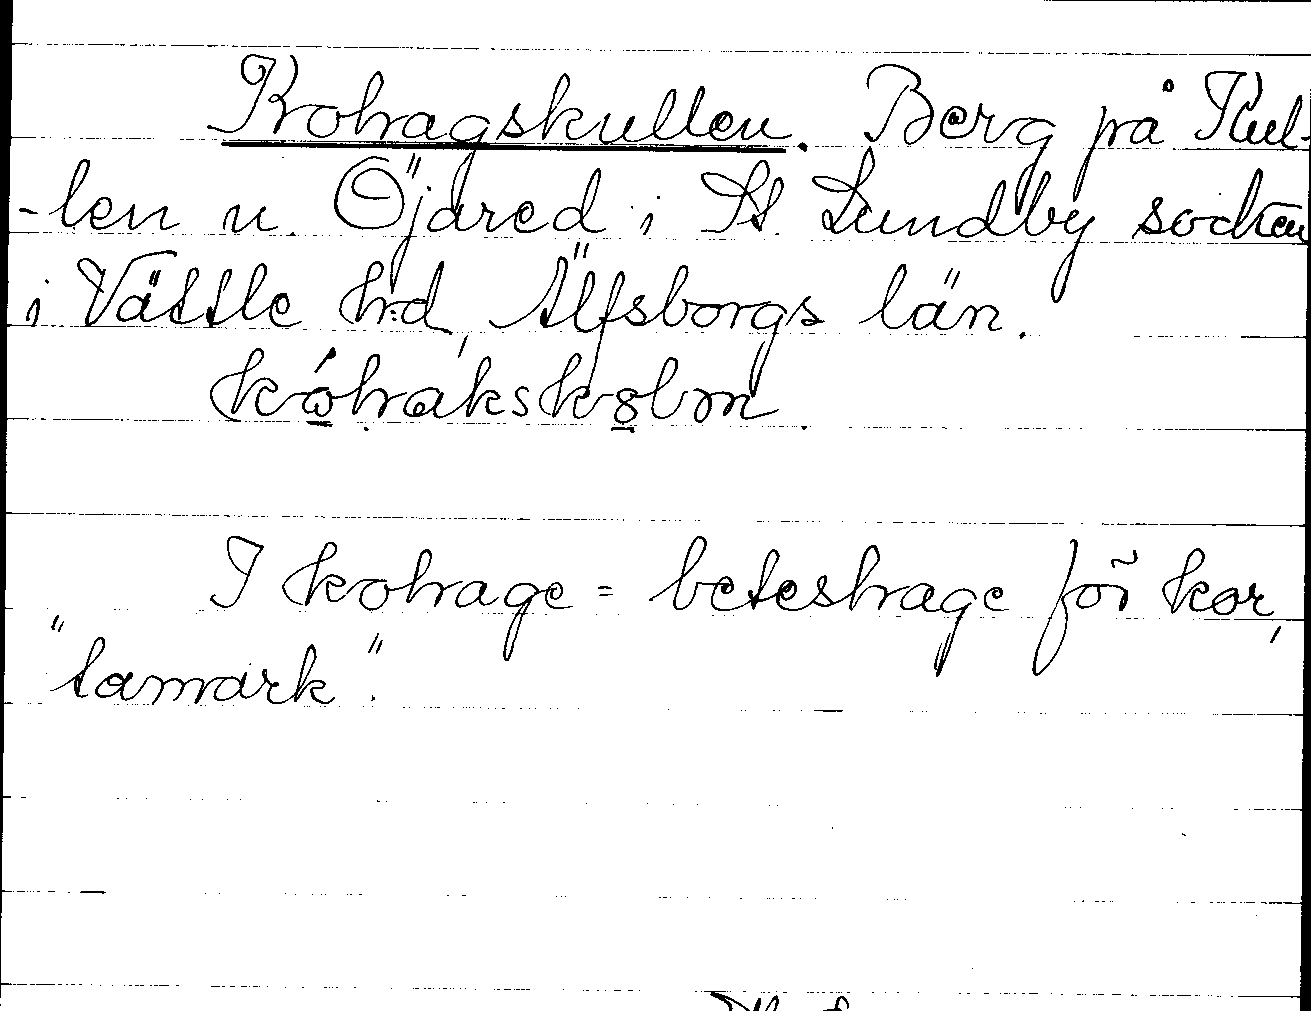 Kohagskullen. Berg på Kul-
-len u. Öjared i St. Lundby socken
i Vättle hd, Älfsborgs län.
kóhakskolm.
I kohage = beteshage för kor,
"tamark".